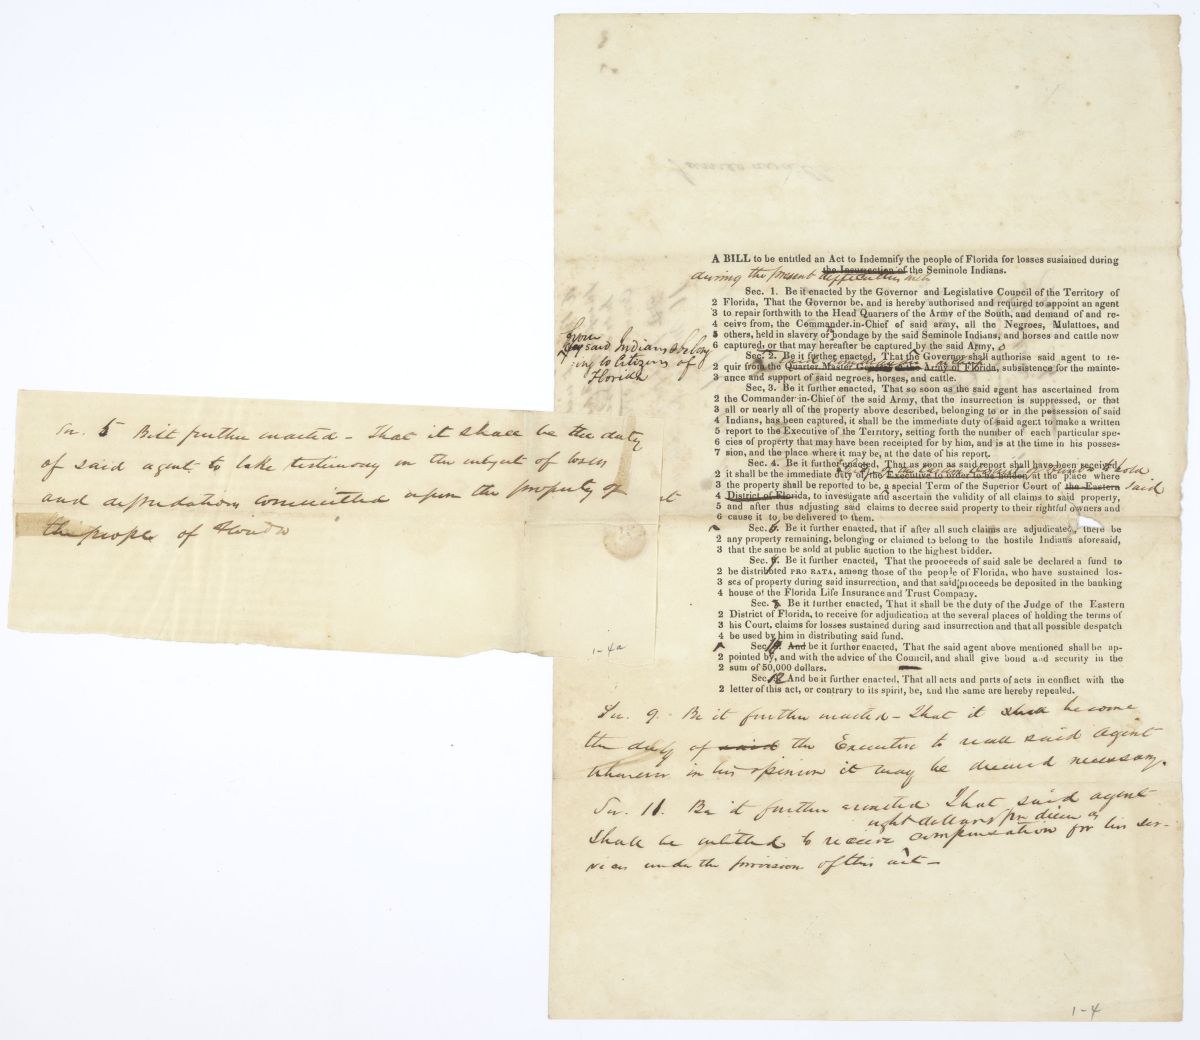 A BILL to be entitled an Act to Indemnify the people of Florida for losses susiained during
the Insurrection of the Seminole Indians.
during the present difficulties with
Sec. 1. Be it enacted by the Governor and Legislative Council of the Territory of
2 Florida, That the Governor be, and is hereby authorised and required to appoint an agent
3 to repair forthwith to the Head Quarters of the Army of the South, and demand of and re-
4 ceive from, the Commander-in-Chief of said army, all the Negroes, Mulattoes, and
5 others, held in slavery or bondage by the said Seminole Indians, and horses and cattle now
6 captured, or that may hereafter be captured by the said Army,
from
said Indians belong
ing to Citizens of
Florida
Sec. 2. Be it further enacted, That the Governor shall authorise said agent to re-
2 quir from the Quarter Master General of the Army of Florida, subsistence for the mainte-
3 ance and support of said negroes, horses, and cattle.
Sec, 3. Be it further enacted, That so soon as the said agent has ascertained from
2 the Commander-in-Chief of the said Army, that the insurrection is suppressed, or that
3 all or nearly all of the property above described, belonging to or in the possession of said
4 Indians, has been captured, it shall be the immediate duty of said agent to make a written
5 report to the Executive of the Territory, setting forth the number of each particular spe-
6 cies of property that may have been receipted for by him, and is at the time in his posses-
7 sion, and the place where it may be, at the date of his report.
Sec. 4. Be it further enacted, That as soon as said report shall have been received,
2 it shall be the immediate duty of the Executive to order to be holden at the place where
to hold
3 the property shall be reported to be, a special Term of the Superior Court of the Eastern said
4 District of Florida, to investigate & ascertain the validity of all claims to said property,
5 and after thus adjusting said claims to decree said property to their rightful owners and
6 cause it to be delivered to them.
Sec. 5 Be it further enacted – That it shall be the duty
of said agent to take testimony on the subject of losses
and depredations committed upon the property of
the people of Florida
1-4a
Sec. 6. Be it further enacted, that if after all such claims are adjudicated, there be
2 any property remaining, belonging or claimed to belong to the hostile Indians aforesaid,
3 that the same be sold at public auction to the highest bidder.
Sec. Be it further enacted, That the proceeds of said sale be declared a fund to
2 be distributed PRO RATA, among those of the people of Florida, who have sustained los-
3 ses of property during said insurrection, and that said proceeds be deposited in the banking
4 house of the Florida Life Insurance and Trust Company.
Sec. Be it further enacted, That it shall be the duty of the Judge of the Eastern
2 District of Florida, to receive for adjudication at the several places of holding the terms of
3 his Court, claims for losses sustained during said insurrection and that all possible despatch
4 be used by him in distributing said fund.
Sec. 10. And be it further enacted, That the said agent above mentioned shall be ap-
2 pointed by, and with the advice of the Council, and shall give bond and security in the
2 sum of 50,000 dollars.
Sec. 12 And be it further enacted, That all acts and parts of acts in conflict with the
2 letter of this act, or contrary to its spirit, be, and the same are hereby repealed.
Sec. 9. Be it further enacted – That it shall become
the duty of said the Executive to recall said Agent
whenever in his opinion it may be deemed necessary.
Sec. 11. Be it further enacted That said agent
eight dollars per diem as
shall be entitled to receive compensation for his ser-
vices under the provision of this act –
1-4